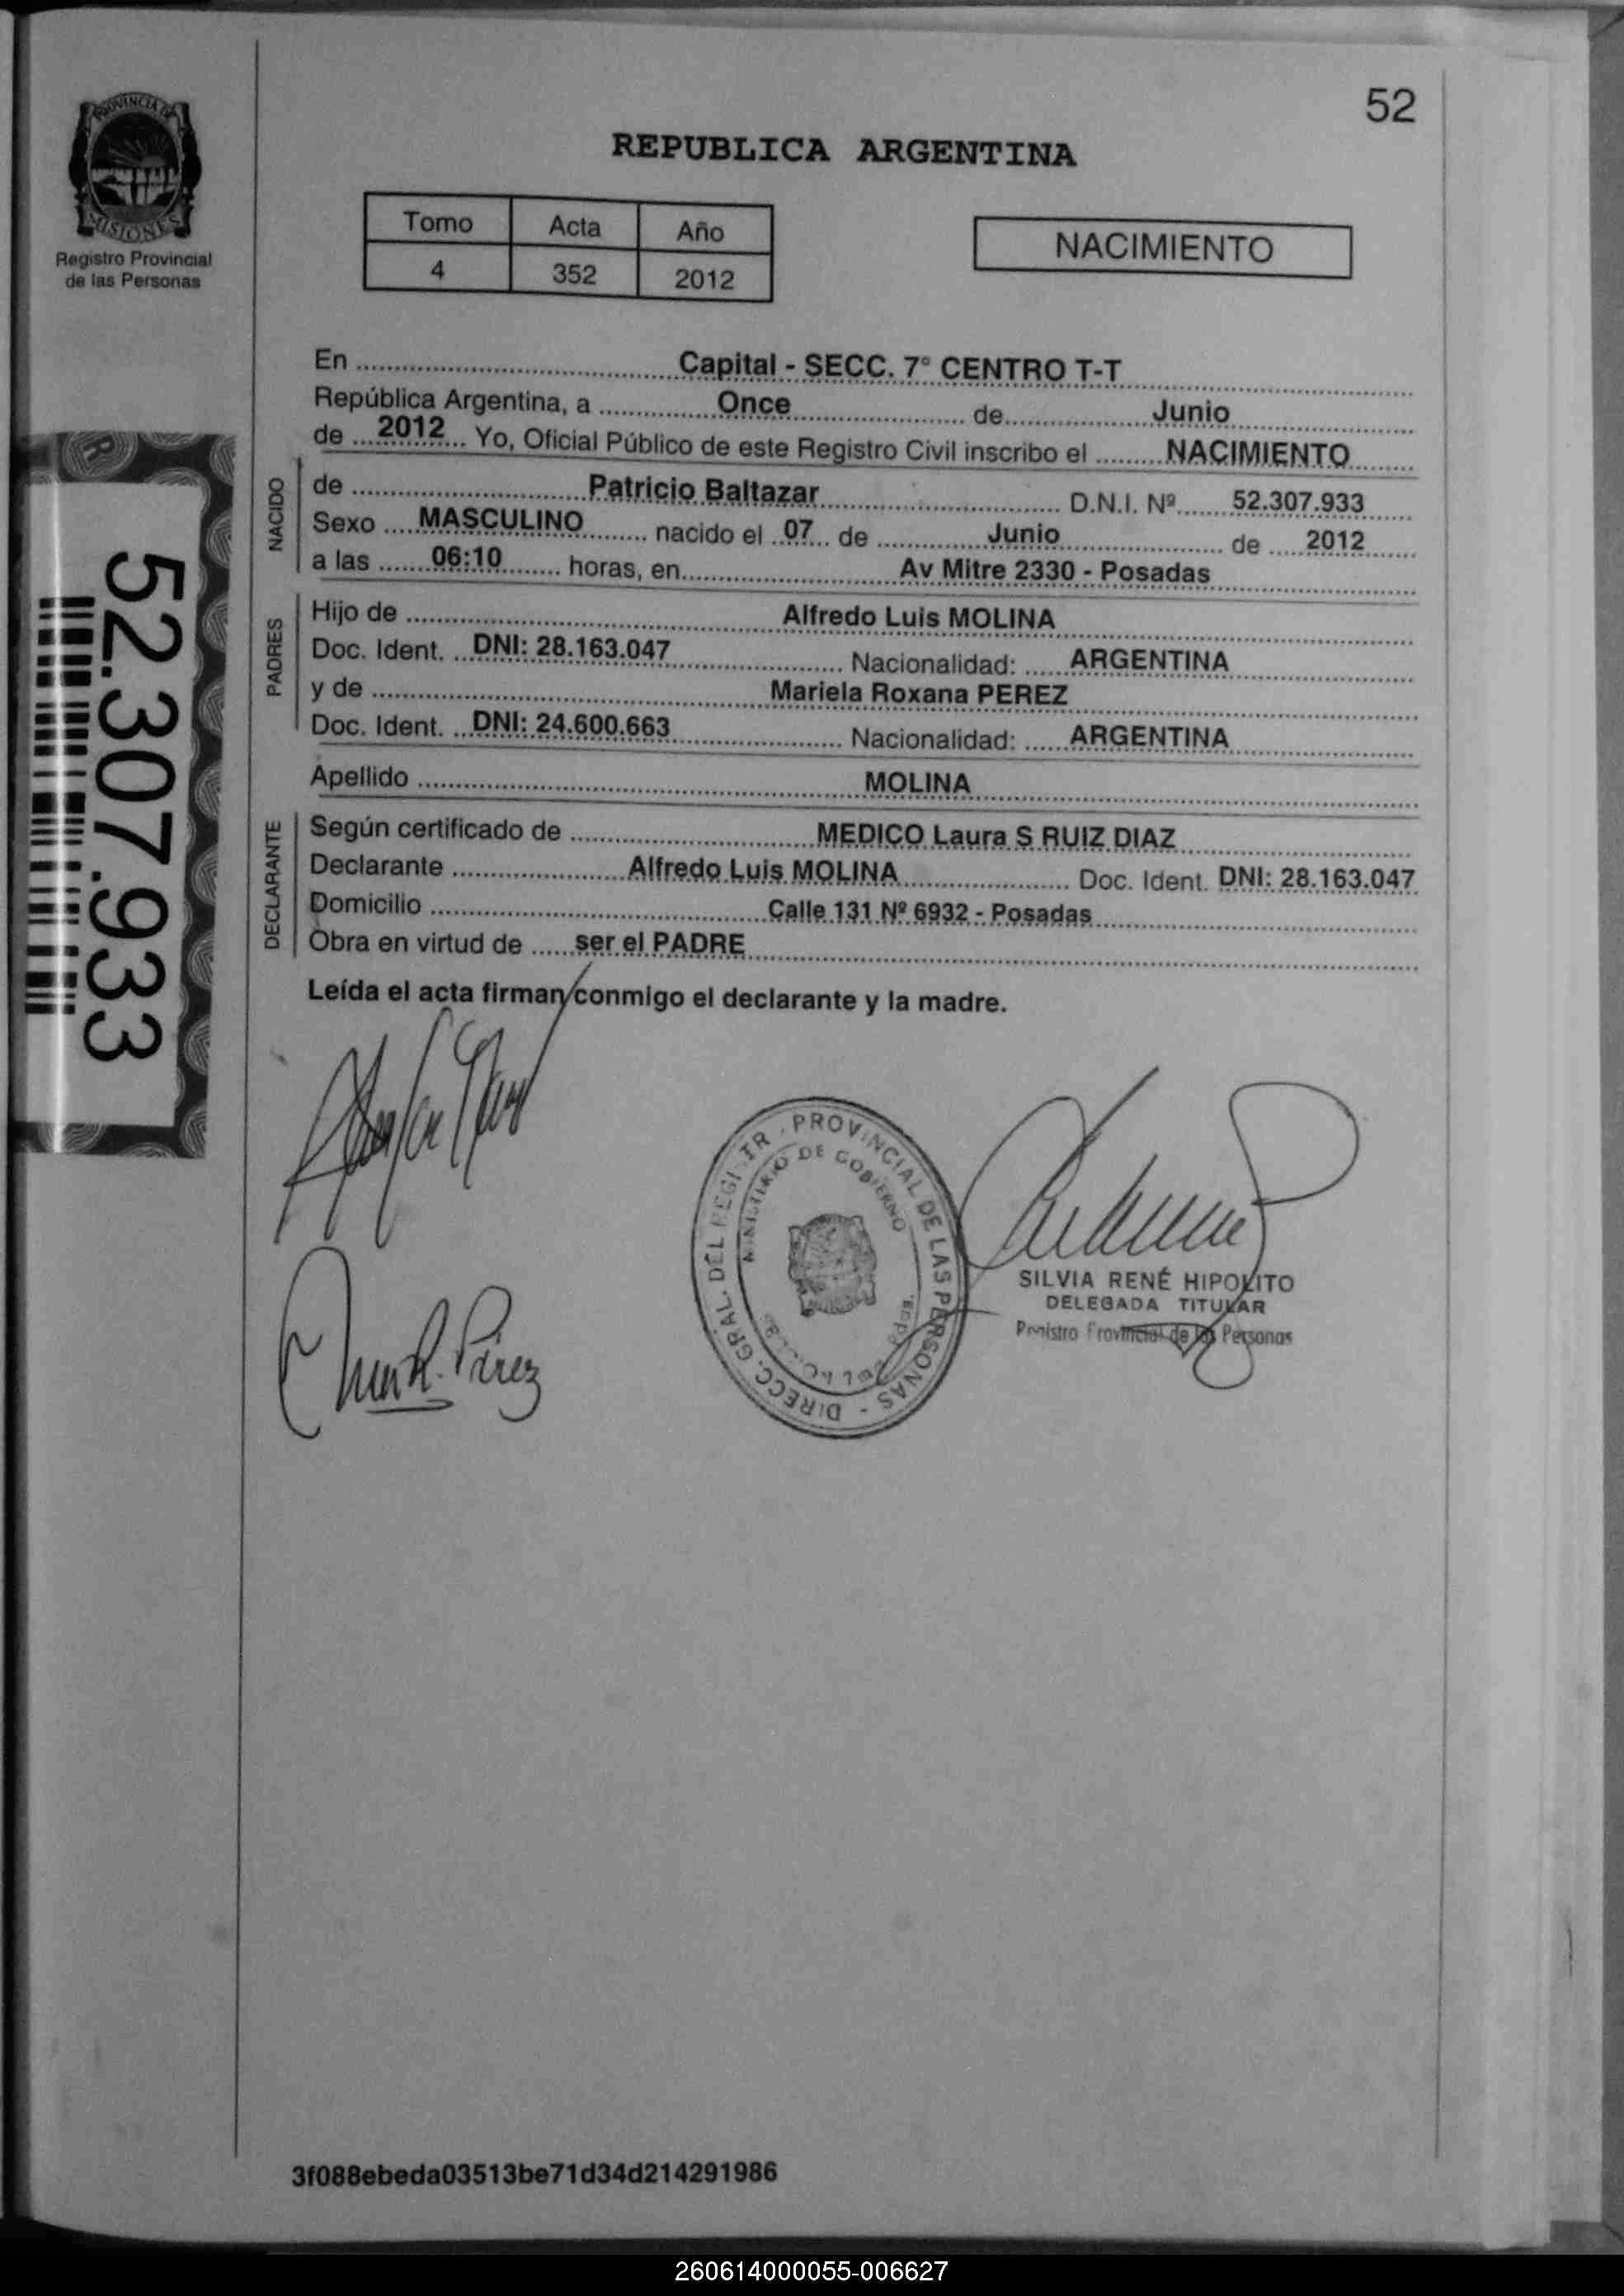 52
PROVINCIA DE
MISIONES
Registro Provincial
de las Personas
REPUBLICA ARGENTINA
Tomo Acta Año
4 352 2012
NACIMIENTO
En Capital - SECC. 7° CENTRO T-T
República Argentina, a Once de Junio
de 2012 Yo, Oficial Público de este Registro Civil inscribo el NACIMIENTO
NACIDO
de Patricio Baltazar D.N.I. Nº 52.307.933
Sexo MASCULINO nacido el 07 de Junio de 2012
a las 06:10 horas, en Av Mitre 2330 - Posadas
PADRES
Hijo de Alfredo Luis MOLINA
Doc. Ident. DNI: 28.163.047 Nacionalidad: ARGENTINA
y de Mariela Roxana PEREZ
Doc. Ident. DNI: 24.600.663 Nacionalidad: ARGENTINA
Apellido MOLINA
DECLARANTE
Según certificado de MEDICO Laura S RUIZ DIAZ
Declarante Alfredo Luis MOLINA Doc. Ident. DNI: 28.163.047
Domicilio Calle 131 Nº 6932 - Posadas
Obra en virtud de ser el PADRE
Leída el acta firman conmigo el declarante y la madre.
R
52.307.933
DIRECC. GRAL. DEL REGISTR. PROVINCIAL DE LAS PERSONAS
MINISTERIO DE GOBIERNO
R. Pérez
SILVIA RENÉ HIPOLITO
DELEGADA TITULAR
Registro Provincial de las Personas
3f088ebeda03513be71d34d214291986
260614000055-006627